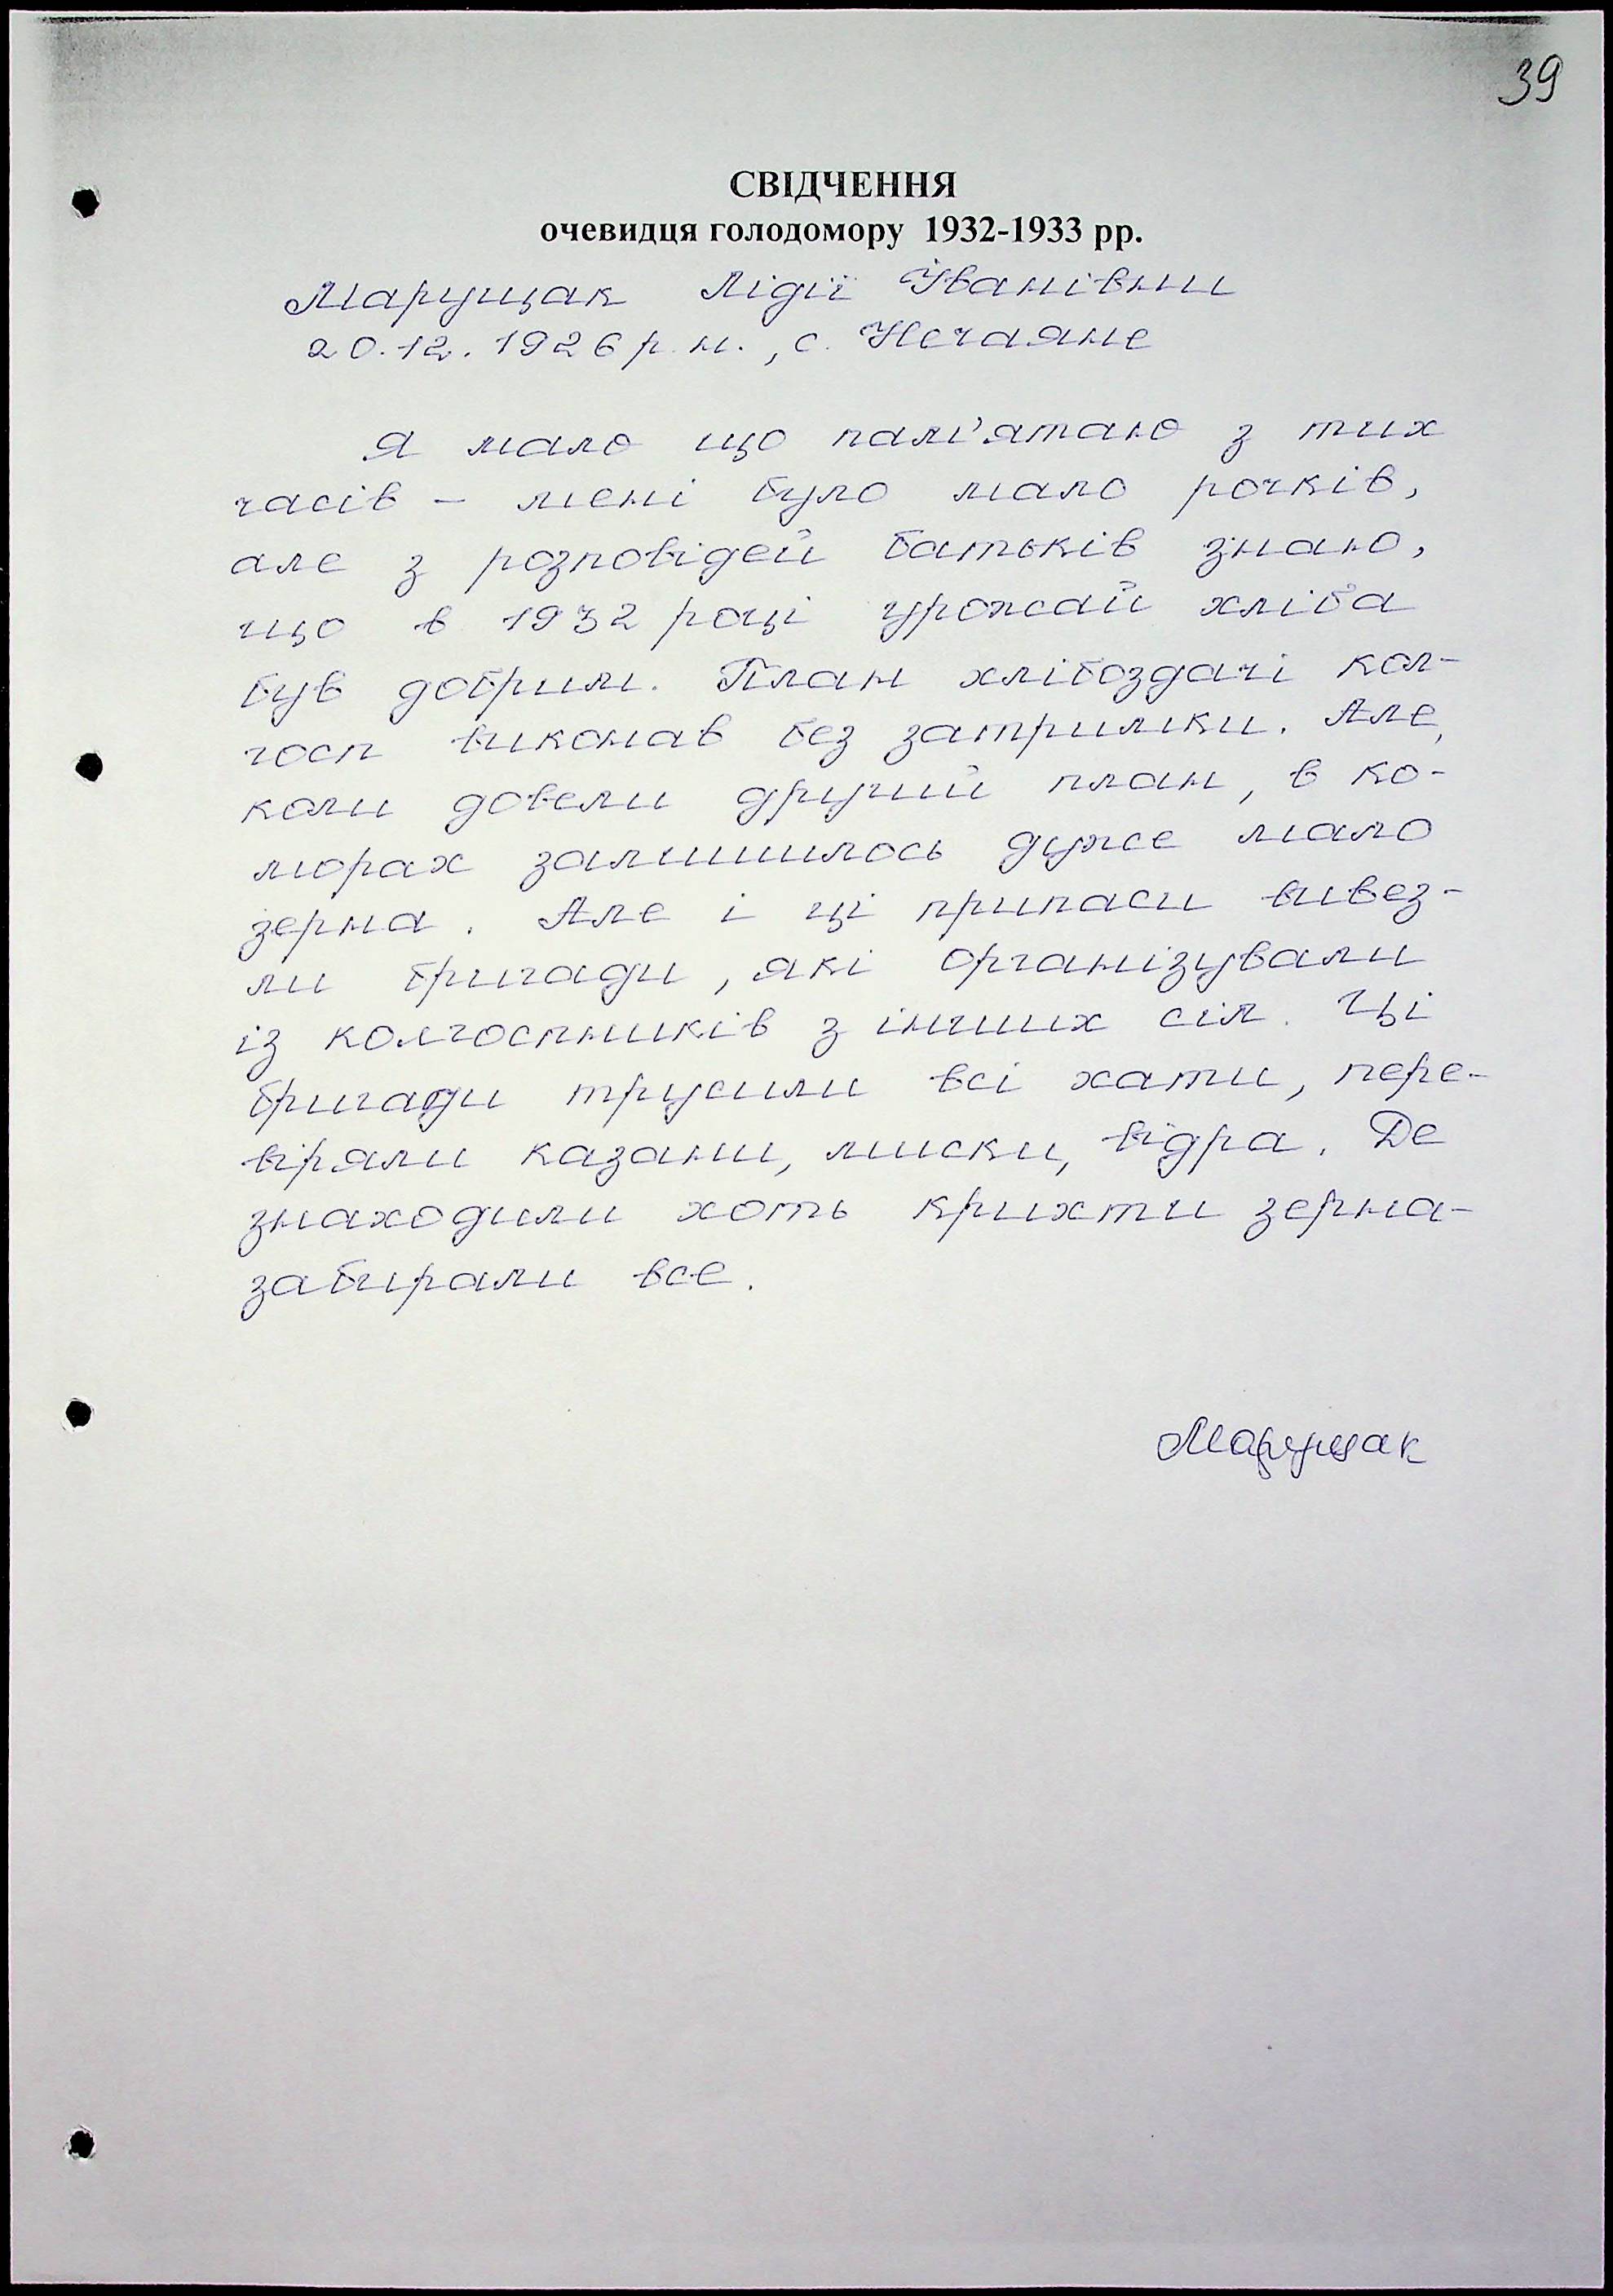 39
СВІДЧЕННЯ
очевидця голодомору 1932-1933 рр.
Марущак Лідії Іванівни
20.12.1926 р.н., с. Нечаяне
Я мало що пам'ятаю з тих
часів - мені було мало рочків,
але з розповідей батьків знаю,
що в 1932 році урожай хліба
був добрим. План хлібоздачі кол-
госп виконав без затримки. Але,
коли довели другий план, в ко-
морах залишилось дуже мало
зерна. Але і ці припаси вивез-
ли бригади, які організували
із колгоспників з інших сіл. Ці
бригади трусили всі хати, пере-
віряли казани, миски, відра. Де
знаходили хоть крихти зерна-
забирали все.
Марущак